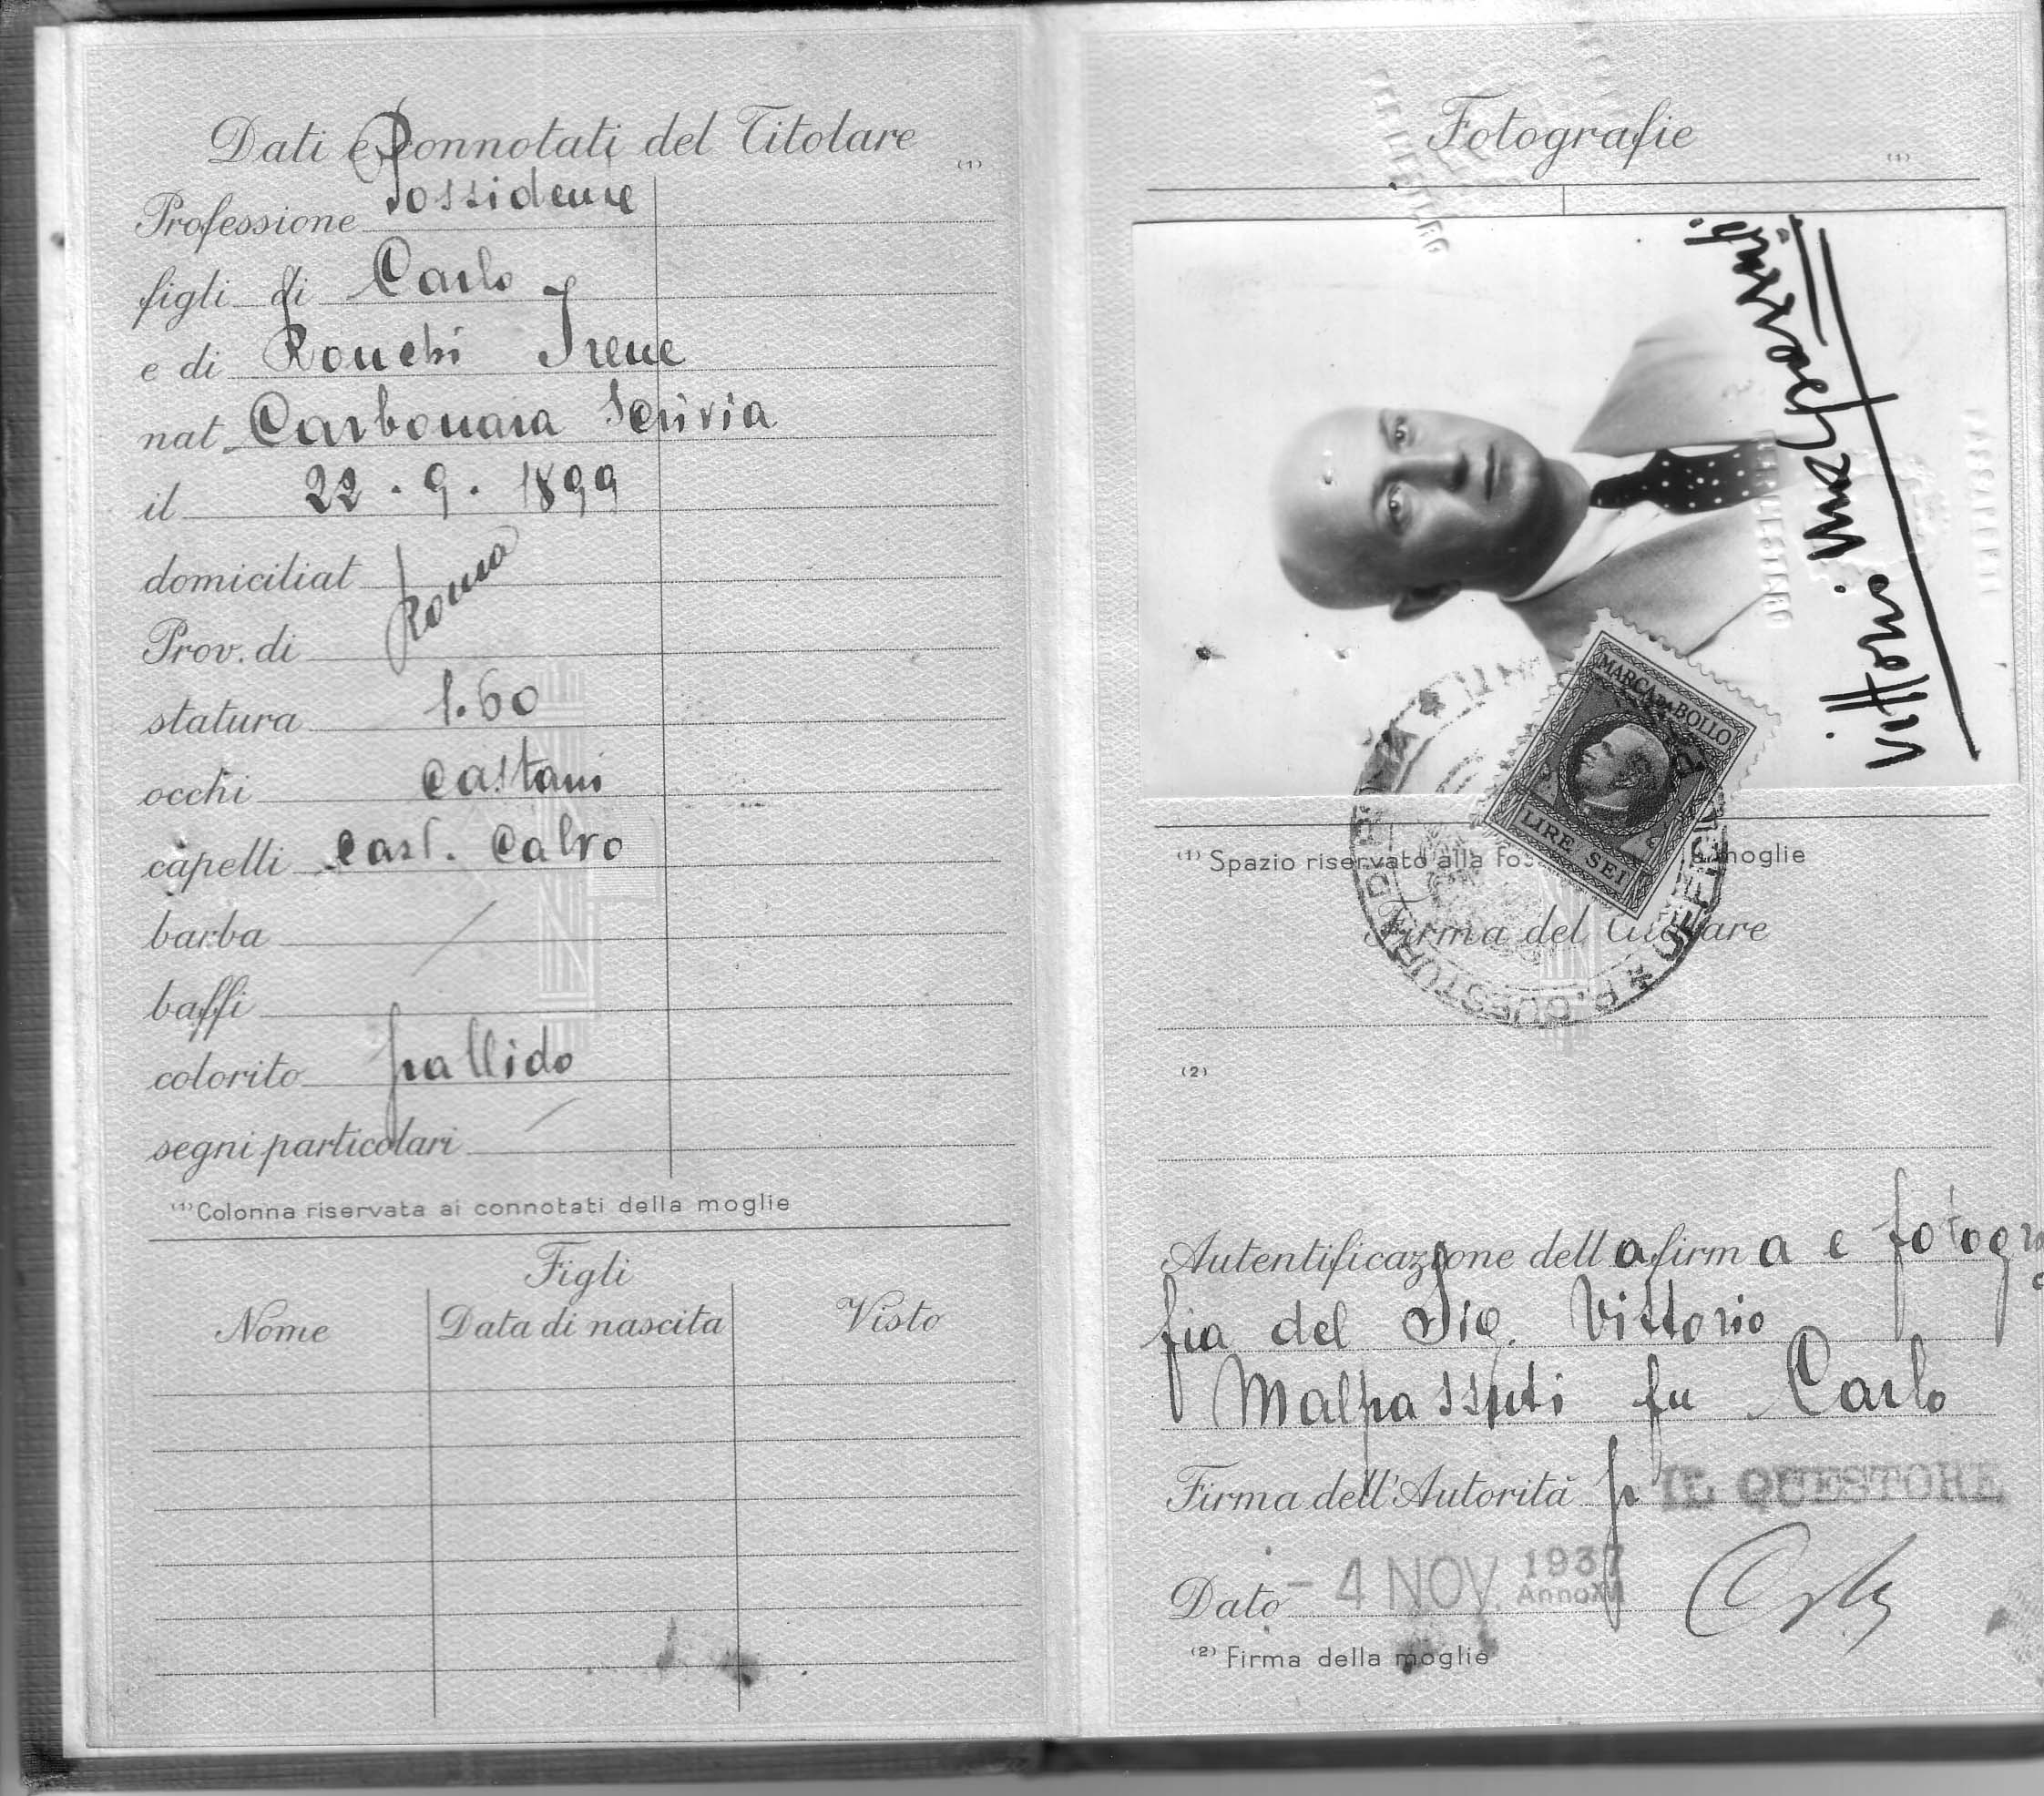 Dati e Connotati del Titolare
(1)
Professione Possidente
figli di Carlo
e di Ronchi Irene
nat Carbonara Scrivia
il 22 . 9 . 1899
domiciliat Roma
Prov. di
statura 1.60
occhi castani
capelli cast. calvo
barba /
baffi
colorito pallido
segni particolari /
(1) Colonna riservata ai connotati della moglie
Figli
Nome Data di nascita Visto
Fotografie
(1)
Vittorio Malpassuti
MARCA DA BOLLO
LIRE SEI
(1) Spazio riservato alla moglie
Firma del Titolare
R. QUESTURA DI
(2)
Autentificazione della firma e fotogra
fia del Sig. Vittorio
Malpassuti fu Carlo
Firma dell'Autorità p IL QUESTORE
Dato - 4 NOV. 1937
Anno XVI
(2) Firma della moglie